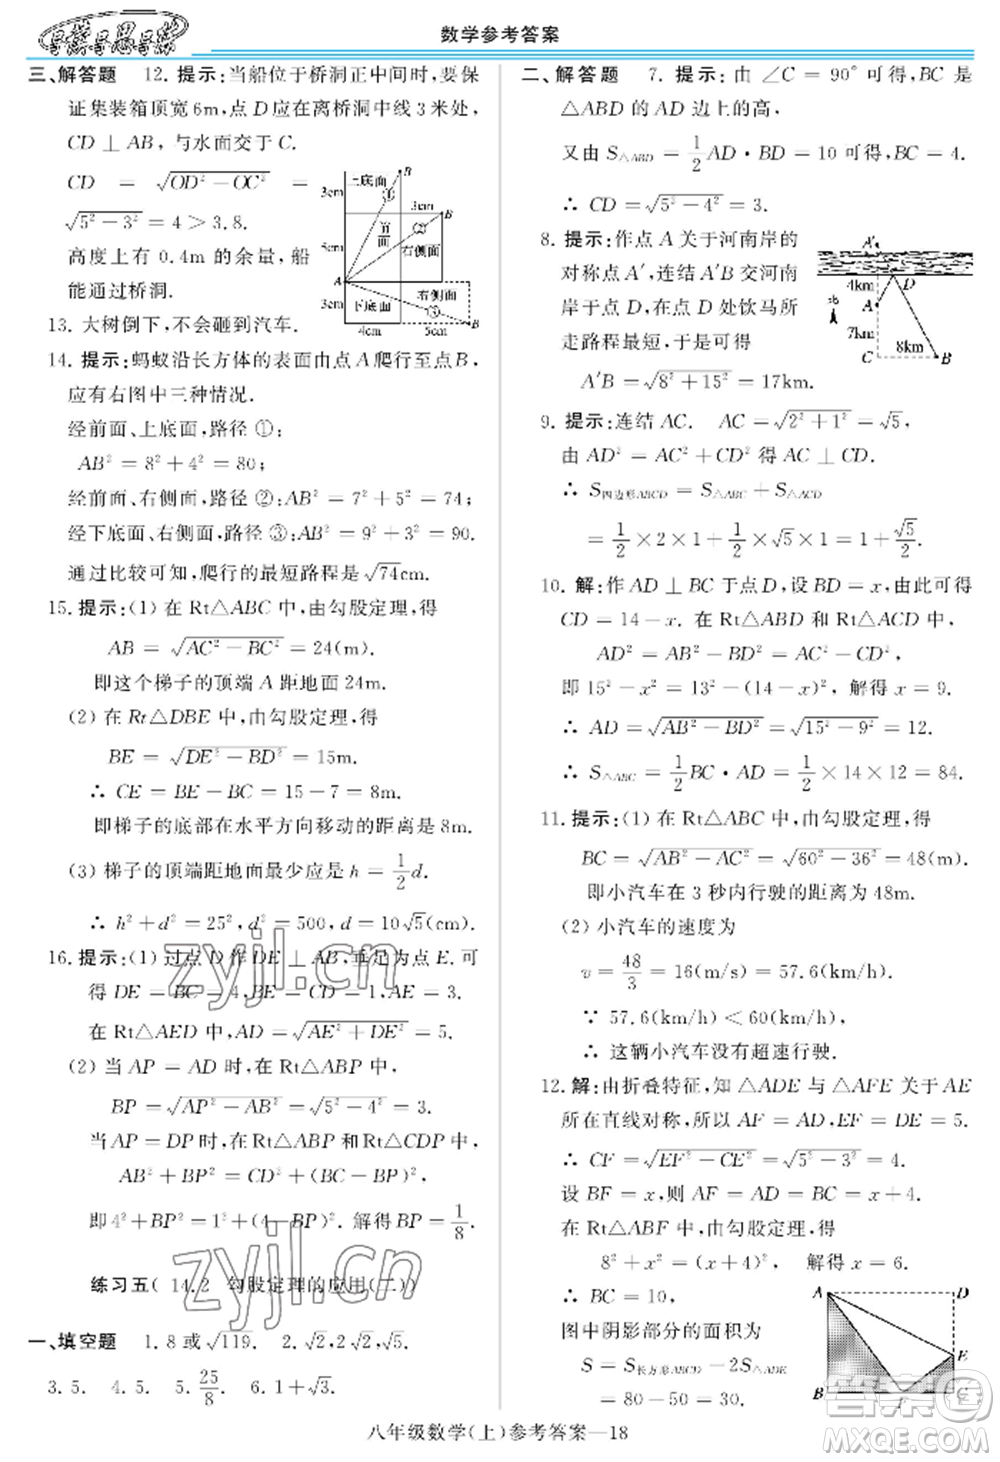 导業导思导练
数学参考答案
三、解答题 12. 提示:当船位于桥洞正中间时,要保
证集装箱顶宽6m,点D应在离桥洞中线3米处,
CD⊥AB,与水面交于C.
CD = √(OD² − OC²) =
√(5² − 3²) = 4 > 3.8.
高度上有 0.4m 的余量,船
能通过桥洞.
3cm 上底面 B
① 3cm B
前面 ② 右侧面
A 右侧面
3cm 下底面 ③
4cm 5cm B
13. 大树倒下,不会砸到汽车.
14. 提示:蚂蚁沿长方体的表面由点A爬行至点B,
应有右图中三种情况.
经前面、上底面,路径①:
AB² = 8² + 4² = 80;
经前面、右侧面,路径②:AB² = 7² + 5² = 74;
经下底面、右侧面,路径③:AB² = 9² + 3² = 90.
通过比较可知,爬行的最短路程是√74cm.
15. 提示:(1) 在 Rt△ABC 中,由勾股定理,得
AB = √(AC² − BC²) = 24(m).
即这个梯子的顶端 A 距地面 24m.
(2) 在 Rt△DBE 中,由勾股定理,得
BE = √(DE² − BD²) = 15m.
∴ CE = BE − BC = 15 − 7 = 8m.
即梯子的底部在水平方向移动的距离是8m.
(3) 梯子的顶端距地面最少应是 h = 1/2 d.
∴ h² + d² = 25², d² = 500, d = 10√5(cm).
16. 提示:(1) 过点 D 作 DE ⊥ AB,垂足为点 E. 可
得 DE = BC = 4, BE = CD = 1, AE = 3.
在 Rt△AED 中, AD = √(AE² + DE²) = 5.
(2) 当 AP = AD 时,在 Rt△ABP 中,
BP = √(AP² − AB²) = √(5² − 4²) = 3.
当 AP = DP 时,在 Rt△ABP 和 Rt△CDP 中,
AB² + BP² = CD² + (BC − BP)²,
即 4² + BP² = 1² + (4 − BP)². 解得 BP = 1/8.
练习五( 14.2 勾股定理的应用(二))
一、填空题 1. 8 或 √119. 2. √2, √2, √5.
3. 5. 4. 5. 5. 25/8. 6. 1 + √3.
二、解答题 7. 提示:由 ∠C = 90° 可得, BC 是
△ABD 的 AD 边上的高,
又由 S△ABD = 1/2 AD · BD = 10 可得, BC = 4.
∴ CD = √(5² − 4²) = 3.
8. 提示:作点 A 关于河南岸的
对称点 A′,连结 A′B 交河南
岸于点 D,在点 D 处饮马所
走路程最短,于是可得
A′B = √(8² + 15²) = 17km.
A′
4km D
北 A
7km
C 8km B
9. 提示:连结 AC. AC = √(2² + 1²) = √5,
由 AD² = AC² + CD² 可得 AC ⊥ CD.
∴ S四边形ABCD = S△ABC + S△ACD
= 1/2 × 2 × 1 + 1/2 × √5 × 1 = 1 + √5/2.
10. 解:作 AD ⊥ BC 于点 D,设 BD = x,由此可得
CD = 14 − x. 在 Rt△ABD 和 Rt△ACD 中,
AD² = AB² − BD² = AC² − CD²,
即 15² − x² = 13² − (14 − x)². 解得 x = 9.
∴ AD = √(AB² − BD²) = √(15² − 9²) = 12.
∴ S△ABC = 1/2 BC · AD = 1/2 × 14 × 12 = 84.
11. 提示:(1) 在 Rt△ABC 中,由勾股定理,得
BC = √(AB² − AC²) = √(60² − 36²) = 48(m).
即小汽车在 3 秒内行驶的距离为 48m.
(2) 小汽车的速度为
v = 48/3 = 16(m/s) = 57.6(km/h).
∵ 57.6(km/h) < 60(km/h),
∴ 这辆小汽车没有超速行驶.
12. 解:由折叠特征,可知 △ADE 与 △AFE 关于 AE
所在直线对称,所以 AF = AD, EF = DE = 5.
∴ CF = √(EF² − CE²) = √(5² − 3²) = 4.
设 BF = x,则 AF = AD = BC = x + 4.
在 Rt△ABF 中,由勾股定理,得
8² + x² = (x + 4)², 解得 x = 6.
∴ BC = 10,
图中阴影部分的面积为
S = S长方形ABCD − 2S△ADE
= 80 − 50 = 30.
A D
E
B F C
zyjl.cn
zyjl.cn
答案圈
八年级数学(上)参考答案—18